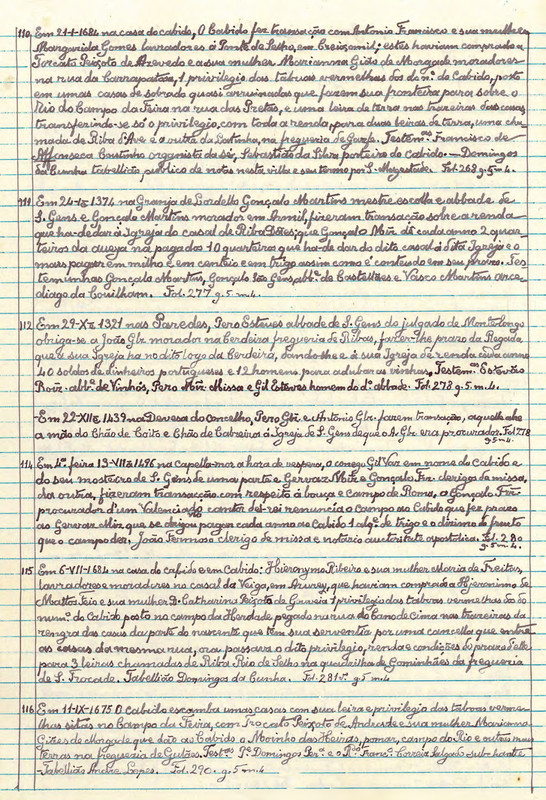 110 Em 21-I-1684 na casa do cabido, O Cabido fez transação com Antonio Francisco e sua mulher
Margarida Gomes lavradores á Ponte de Selho, em Creixomil; estes haviam comprado a
Torcato Peixoto de Azevedo e a sua mulher Marianna Gião de Morgade moradores
na rua da Carrapatosa, 1 privilegio das tabuas vermelhas do do nº. do Cabido, posto
em umas casas de sobrado quasi arruinadas que fazem sua fronteira para sobre o
Rio do Campo da Feira na rua das Pretas, e uma leira de terra nas trazeiras das casas
transferindo-se só o privilegio, com toda a renda, para duas leiras de terra, uma cha-
mada de Riba d'Ave e a outra da Latinha, na freguezia de Garfe. Testemªs Francisco de
Affonseca Coutinho organista da sé, Sebastião da Silva porteiro do Cabido. — Domingos
da Cunha tabellião publico de notas nesta villa e seu termo por S. Magestade. Fol. 268 g. 5 m 4.
111 Em 24-IX-1374 na Granja de Sordello Gonçalo Martins mestre escolla e abbade de
S. Gens e Gonçalo Martins morador em Armil, fizeram transação sobre a renda
que ha-de dar á Igreja do casal de Riba Dães; que Gonçalo Miz dê cada anno 2 quar-
teiros da aveya na paga dos 10 quarteiros que ha-de dar do dito casal á dita Igreja e o
mais pagar em milho e em centeio e em trigo assim como é conteudo em seu prazo. Tes-
temunhas Gonçalo Martins, Gonçalo São Gens, abbª. de Castellães e Vasco Martins arce-
diago da Covilham. Fol. 277 g. 5 m 4.
112 Em 29-XII-1321 nas Paredes, Pero Esteves abbade de S. Gens do julgado de Montelongo
obriga-se a João Glz morador na Cerdeira freguezia de Ribas, fazer-lhe prazo da Regada
que a sua Igreja ha no dito logo da Cerdeira, dando-lhe e á sua Igreja de renda cada anno
40 soldos de dinheiros portugueses e 12 homens para adubar as vinhas, Testemªs Estevão
Roiz abbª. de Vinhós, Pero Miz Missa e Gil Esteves homem do dº. abbade. Fol. 278 g. 5 m. 4.
-Em 22-XII-1439 na Devesa do Concelho, Pero Glz e Antonio Glz. fazem transação, aquelle abre
a mão do Chão de Coito e Chão de Cabreira á Igreja de S. Gens de que o A. Glz era procurador. Fol 278
g. 5 m 4.
114 Em 4ª. feira 13-VII-1496 na capella-mor a hora de vespera, o conego Gil Vaz em nome do Cabido e
do seu mosteiro de S. Gens de uma parte e Gervaz Miz e Gonçalo Frz clerigo de missa,
da outra, fizeram transacção com respeito á bouça e campo de Roma, o Gonçalo Frz
procurador d'um Valenciano cantor del-rei renunciou o campo ao Cabido que fez prazo
ao Gervaz Miz, que se obrigou pagar cada anno ao Cabido 1 alqº. de trigo e o dizimo do fruito
que o campo der. João Fermoso clerigo de missa e notario auctoritate apostolica. Fol. 280
g. 5 m. 4.
115 Em 6-VII-1684 na casa do cabido em Cabido: Hieronymo Ribeiro e sua mulher Maria de Freitas,
lavradores e moradores no casal da Veiga, em Azurey, que haviam comprado a Hjeronimo de
Mattos Feio e sua mulher D. Catharina Peixota de Gouveia 1 privilegio das tabuas vermelhas do do
numº. do Cabido posto no campo da Herdade pegado na rua do Cano de Cima nas trazeiras da
rengra das casas da parte do nascente que tem sua serventia por uma cancella que entre
as casas da mesma rua, ora passou o dito privilegio, renda e condições do prazo d'elle
para 3 leiras chamadas de Riba Rio de Selho na quadrilha de Gominhães da freguezia
de S. Trocade. Tabellião Domingos da Cunha. Fol. 281 vº. g. 5 m 4
116 Em 11-IX-1675 O Cabido escomba umas casas com sua leira e privilegio das taboas verme-
lhas sitas no Campo da Feira, com Trocato Peixoto de Andrade e sua mulher Marianna
Giães de Morgade que dão ao Cabido o Moinho das Heiras, pomar, campo do Rio e outras mais
terras na freguezia de Gulães. Testªs Pº. Domingos Perª. e o Rdº. Fransº. Correia Salgado sub-chantre
-Tabellião Andre Lopes. Fol. 290. g. 5 m. 4